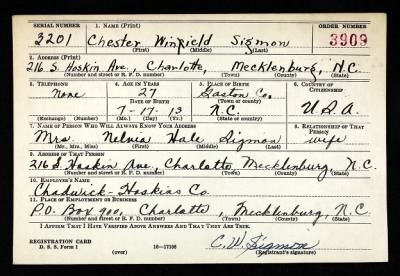 SERIAL NUMBER 1. NAME (Print) ORDER NUMBER
3201 Chester Winfield Sigmon 3909
(First) (Middle) (Last)
2. ADDRESS (Print)
216 S. Hoskin Ave., Charlotte, Mecklenburg, N.C.
(Number and street or R. F. D. number) (Town) (County) (State)
3. TELEPHONE 4. AGE IN YEARS 5. PLACE OF BIRTH 6. COUNTRY OF CITIZENSHIP
None 27 Gaston Co.
DATE OF BIRTH (Town or county)
7-17-13 N.C. U.S.A.
(Exchange) (Number) (Mo.) (Day) (Yr.) (State or country)
7. NAME OF PERSON WHO WILL ALWAYS KNOW YOUR ADDRESS 8. RELATIONSHIP OF THAT PERSON
Mrs. Hale Sigmon wife
(Mr., Mrs., Miss) (First) (Middle) (Last)
9. ADDRESS OF THAT PERSON
216 S. Hoskin Ave, Charlotte, Mecklenburg, N.C.
(Number and street or R. F. D. number) (Town) (County) (State)
10. EMPLOYER'S NAME
Chadwick-Hoskins Co.
11. PLACE OF EMPLOYMENT OR BUSINESS
P.O. Box 900, Charlotte, Mecklenburg, N.C.
(Number and street or R. F. D. number) (Town) (County) (State)
I AFFIRM THAT I HAVE VERIFIED ABOVE ANSWERS AND THAT THEY ARE TRUE.
REGISTRATION CARD
D. S. S. Form 1 (over) 16-17105 C.W. Sigmon
(Registrant's signature)